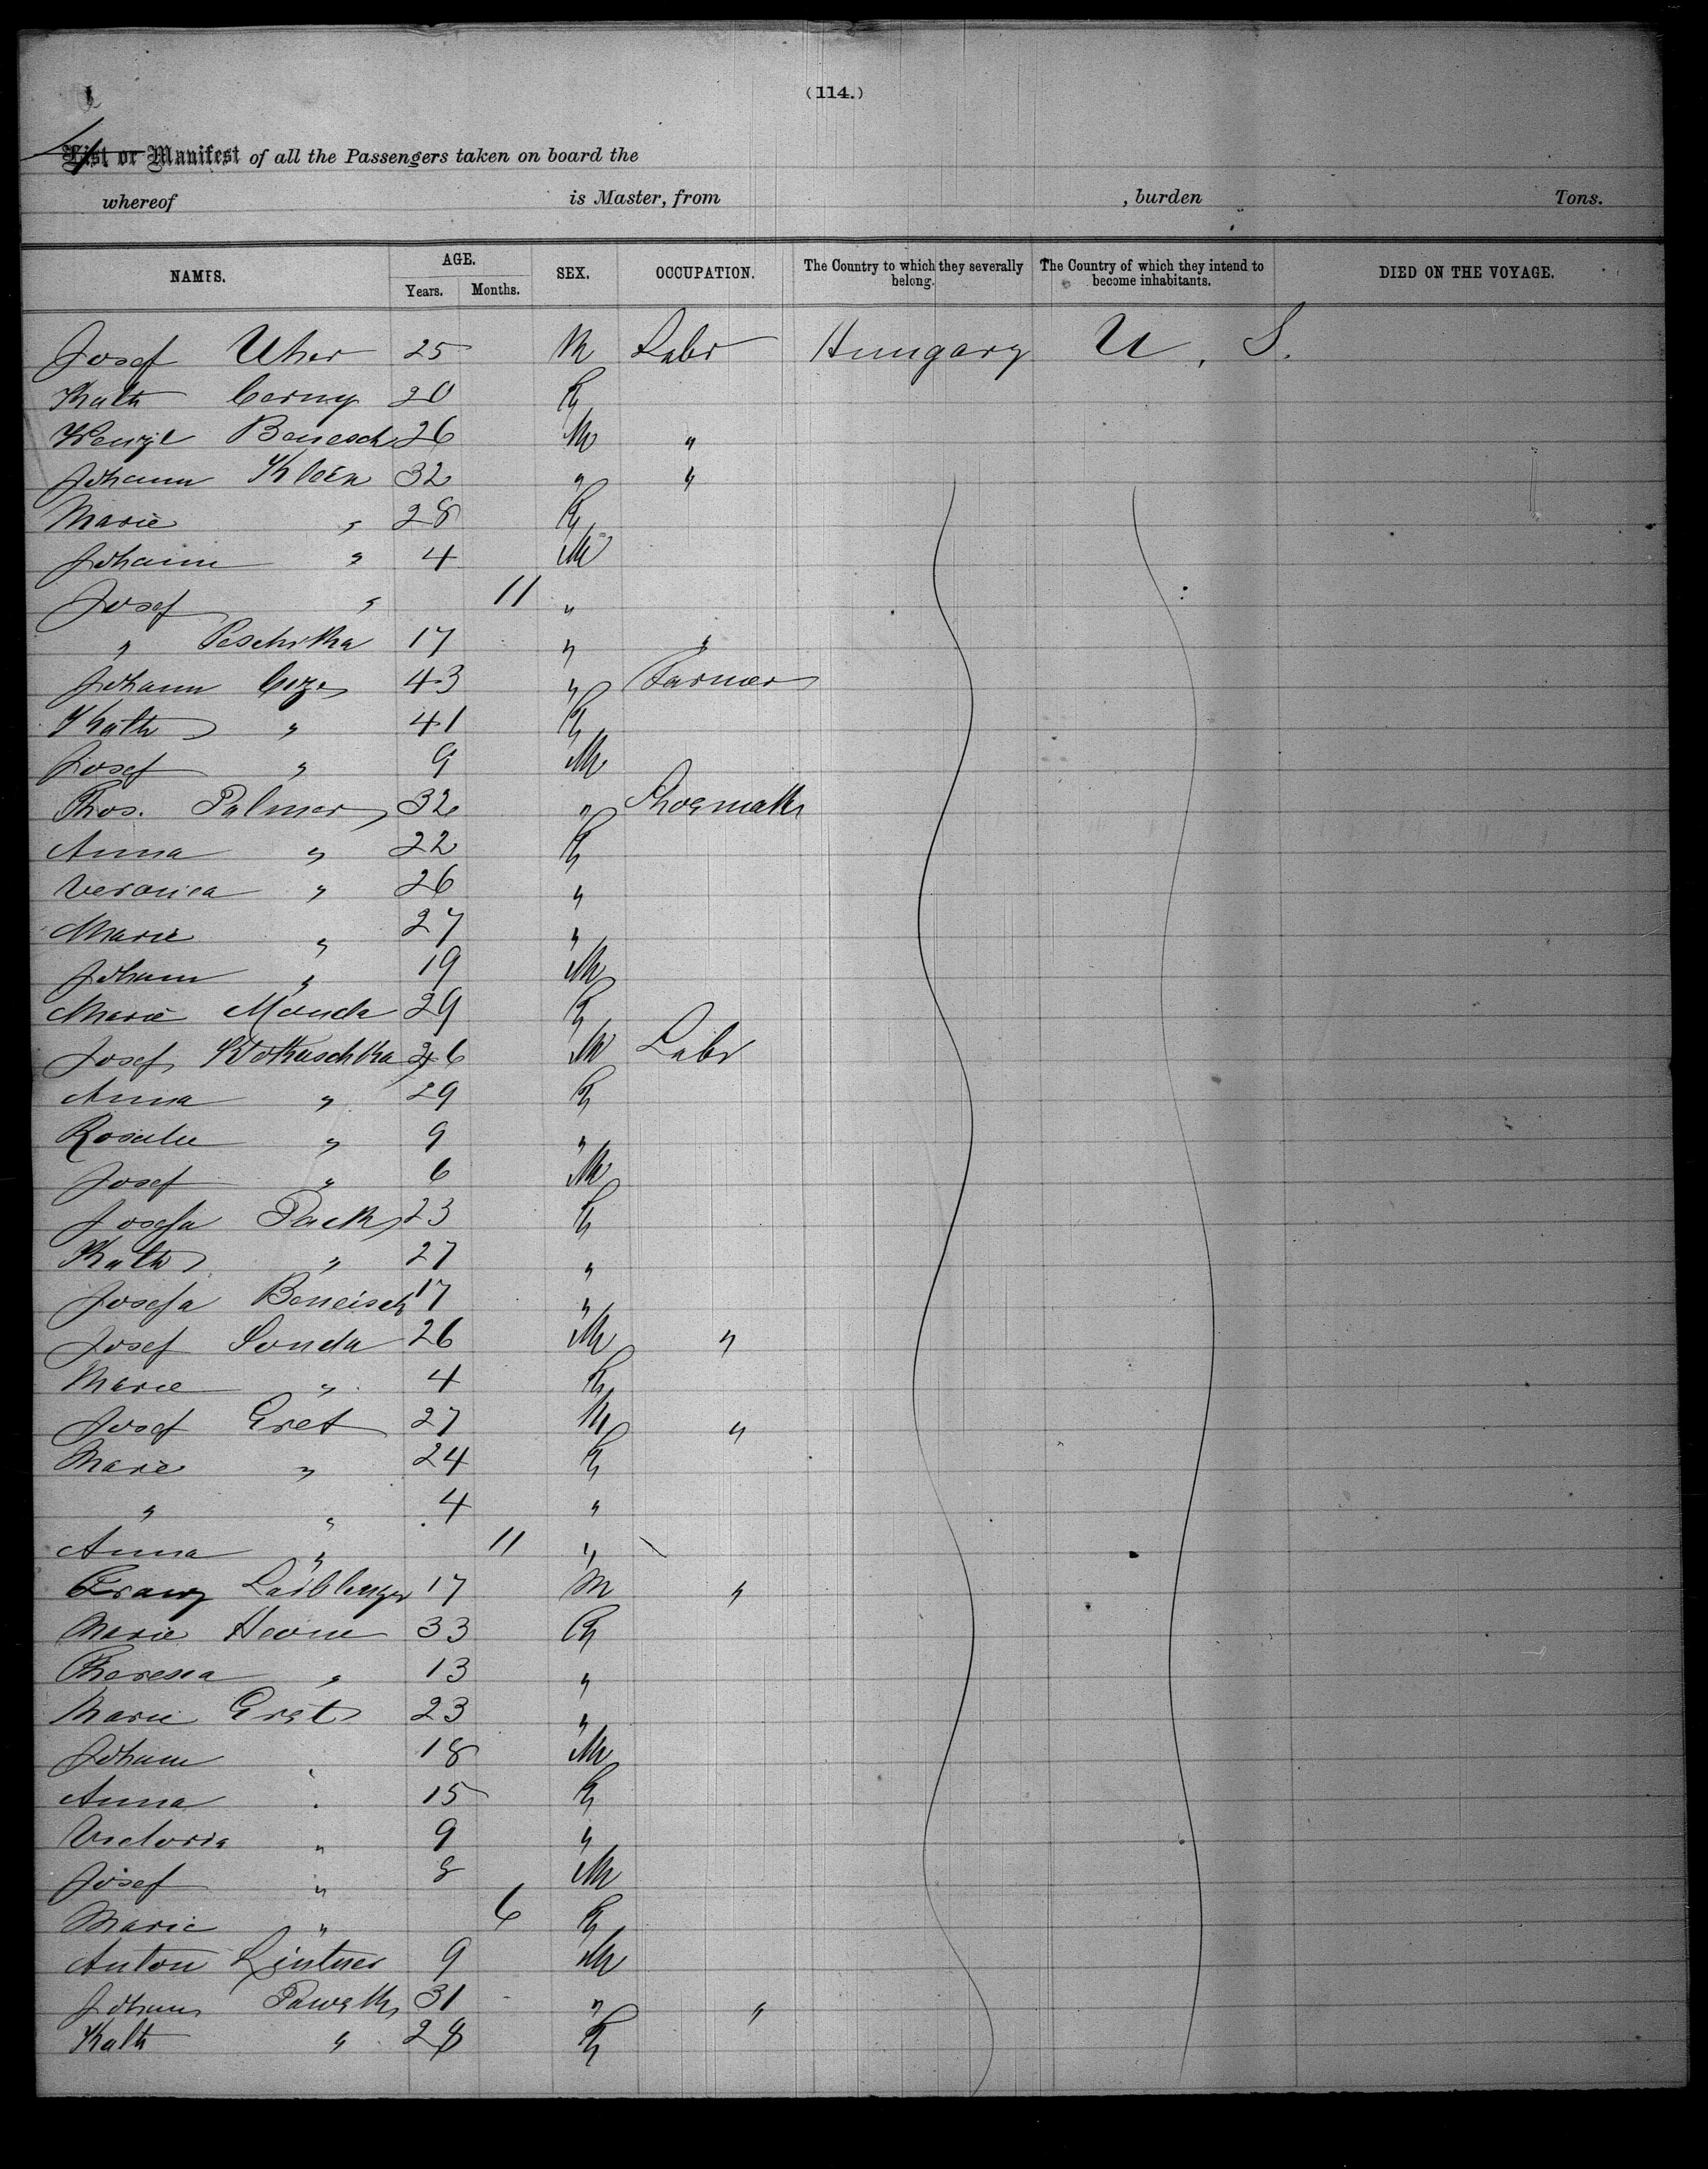 (114.)
List or Manifest of all the Passengers taken on board the
whereof is Master, from , burden Tons.
NAMES. AGE. Years. Months. SEX. OCCUPATION. The Country to which they severally belong. The Country of which they intend to become inhabitants. DIED ON THE VOYAGE.
Josef Uher 25 M Labr Hungary U. S.
Kath Cerny 20 F
Wenzl Benesch 26 M "
Johann 32 " "
Marie " 28 F
Johann " 4 M
Josef " 11 "
" Peschitka 17 " "
Johann 43 " Farmer
Kath " 41 F
Josef " 9 M
Thos. Palmer 32 " Shoemakr
Anna " 22 F
Veronica " 26 "
Marie " 27 "
Johann " 19 M
Marie Monda 29 F
Josef Wotruschka 6 M Labr
Anna " 29 F
Rosalie " 9 "
Josef " 6 M
Josefa 23 F
Kath " 27 "
Josefa Beneisch 17 "
Josef Sonda 26 M "
Marie " 4 F
Josef Gret 27 M "
Marie " 24 F
" " 4 "
Anna " 11 "
Franz 17 M "
Marie 33 F
Theresia " 13 "
Marie Gret 23 "
Johann " 18 M
Anna " 15 F
Victoria " 9 "
Josef " 8 M
Marie " 6 F
Anton Lintner 9 M
Johann 31 " "
Kath " 28 F